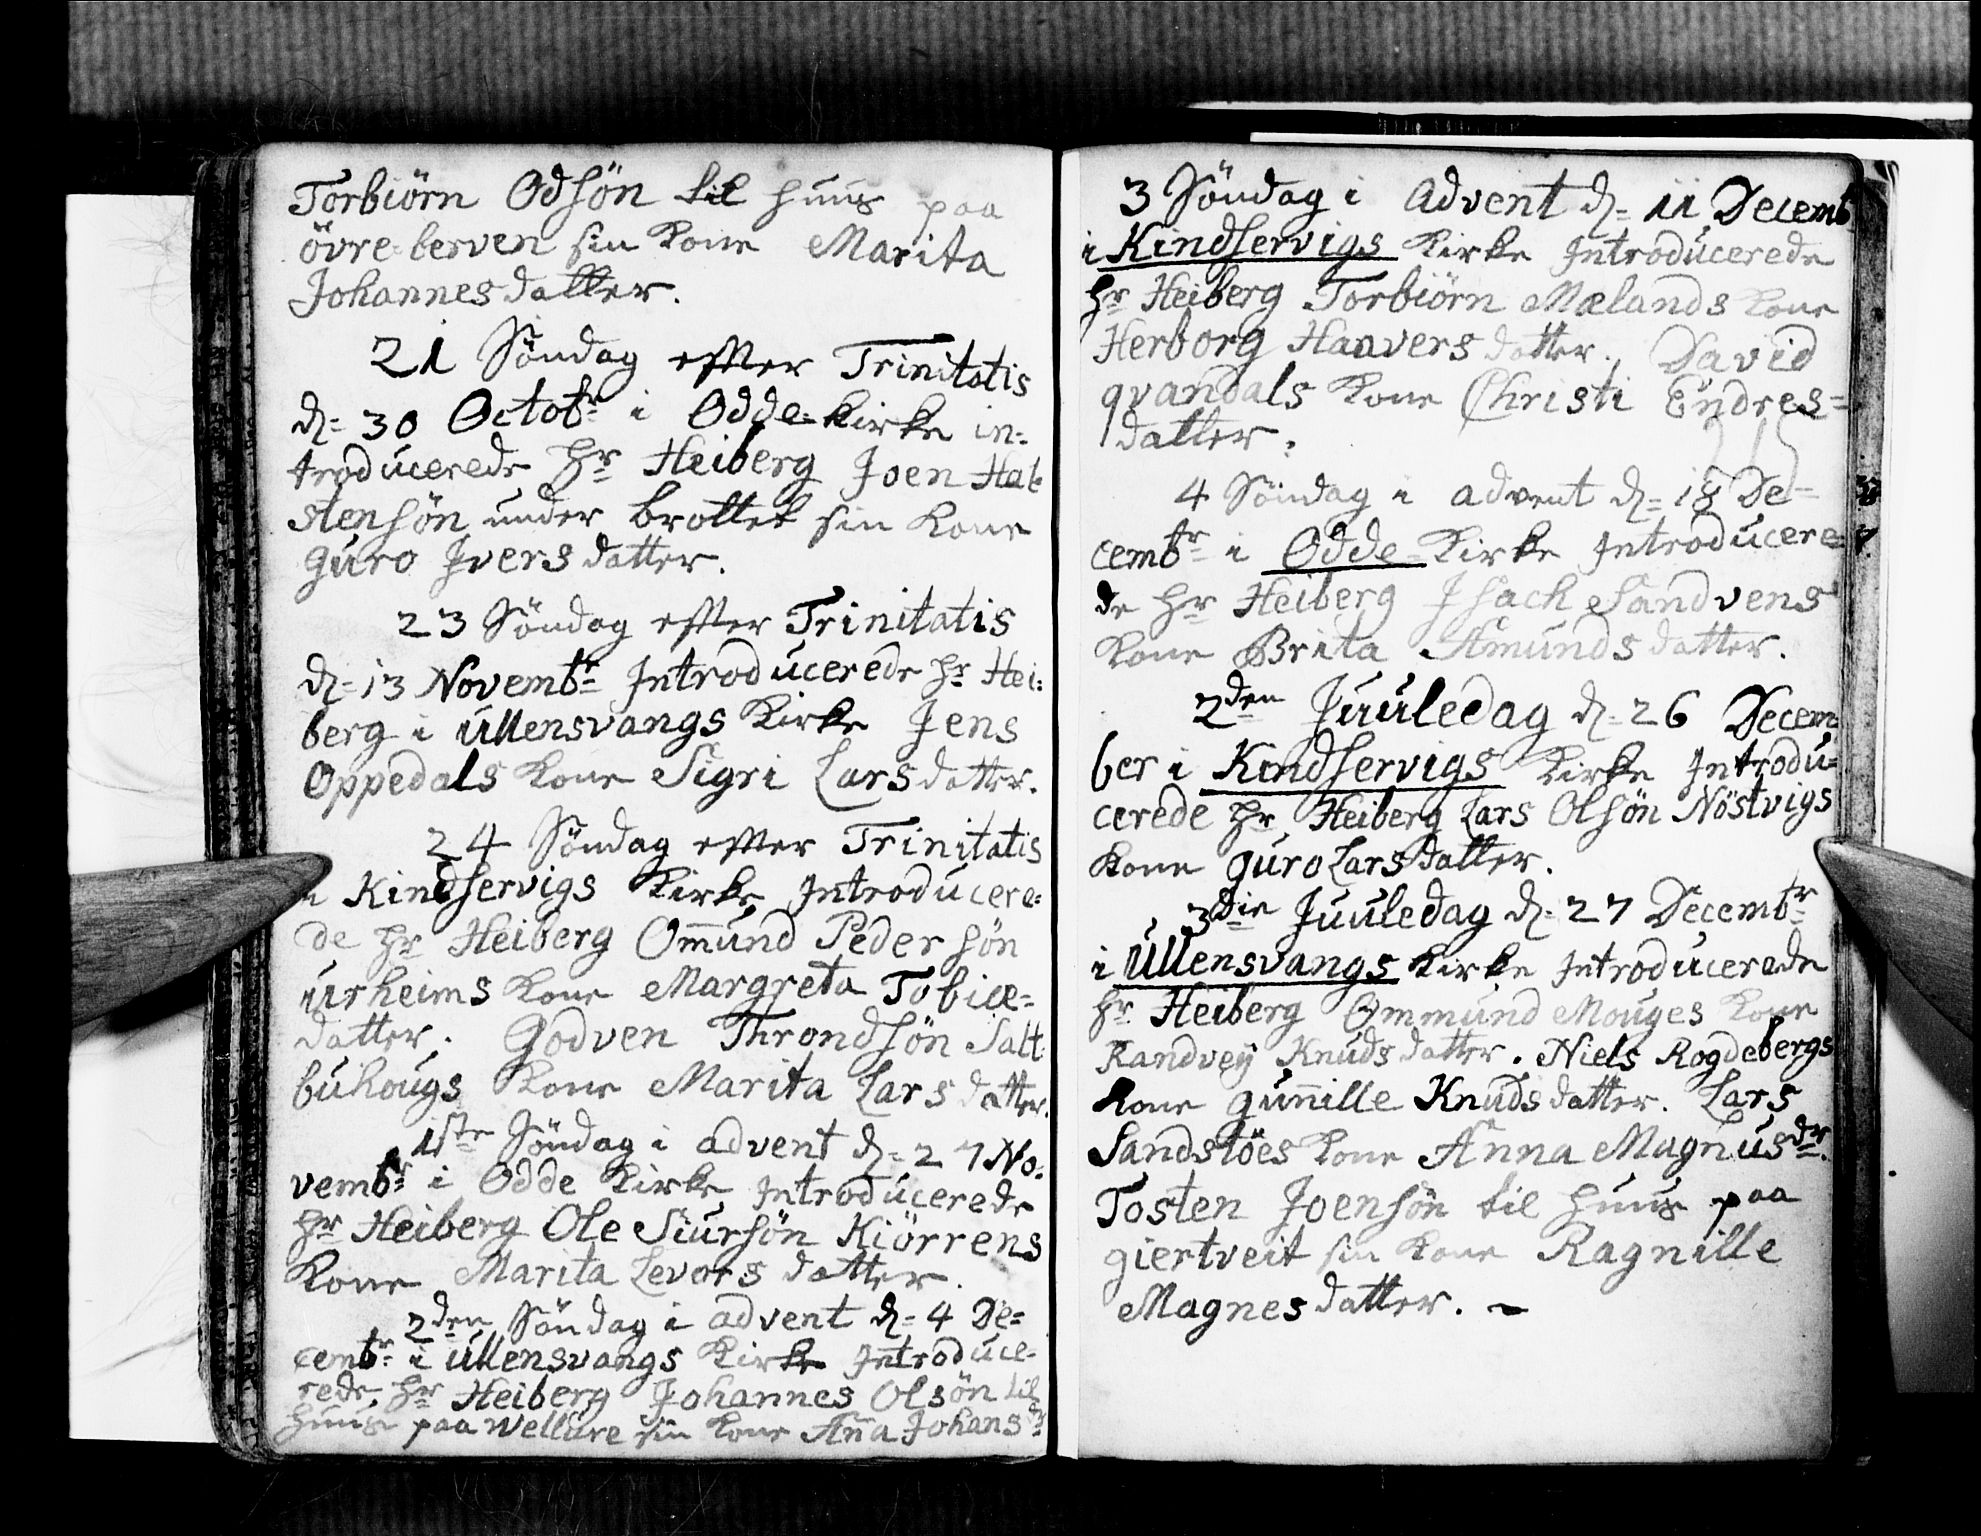 Torbiörn Odsön til huus paa
övre berven sin Kone Marita
Johannesdatter.
21 Söndag efter Trinitatis
d: 30 Octobr i Odde Kirke in=
troducerede hr Heiberg Joen Hal=
stensön under brottet sin Kone
guro Iversdatter.
23 Söndag efter Trinitatis
d: 13 Novembr Introducerede hr Hei:
berg i Ullensvangs Kirke Jens
Oppedals Kone Sigri Larsdatter.
24 Söndag efter Trinitatis
i Kindservigs Kirke Introducere=
de hr Heiberg Om̄und Pedersön
urheims Kone Margreta Tobiæ=
datter. Godven Throndsön Salt
buhougs Kone Marita Larsdatter.
1ste Söndag i advent d: 27 No:
vembr i Odde Kirke Introducerede
hr Heiberg Ole Siursön Kiörrens
Kone Marita Levorsdatter.
2den Söndag i advent d: 4 De=
cembr i Ullensvangs Kirke Introduce=
rede hr Heiberg Johannes Olsön til
huus paa Wellure sin Kone An̄a Johansdr
3 Söndag i Advent d: 11 Decemb
i Kindservigs Kirke Introducerede
hr Heiberg Torbiörn Mælands Kone
Herborg Haaversdatter. David
qvandals Kone Christi Endres=
datter.
4 Söndag i advent d: 18 De=
cembr i Odde Kirke Introducere=
de hr Heiberg Isach Sandvens
Kone Brita Amundsdatter.
2den Juuledag d: 26 Decem
ber i Kindservigs Kirke Introdu=
cerede hr Heiberg Lars Olsön Nöstvigs
Kone guro Larsdatter.
3die Juuledag d: 27 Decembr
i Ullensvangs Kirke Introducerede
hr Heiberg Ommund Mouges Kone
Randveÿ Knudsdatter. Niels Rogdebergs
Kone gun̄ille Knudsdatter. Lars
Sandstöes Kone Anna Magnusdr.
Tosten Joensön til huus paa
giertveit sin Kone Ragnille
Magnesdatter.